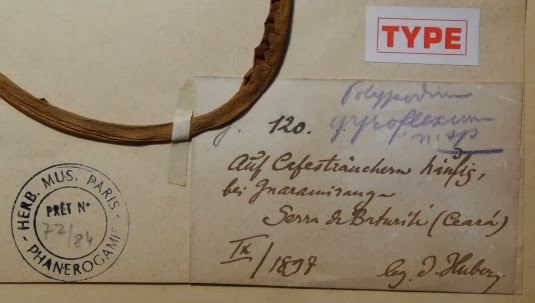 TYPE
Polypodium
gyroflexum
n. sp
J. 120.
Auf Cafesträuchern häufig,
bei Guaramiranga
Serra de Baturité (Ceará)
IX/1897
leg. J. Huber
HERB. MUS. PARIS
PRÊT N°
72/84
PHANEROGAMIE